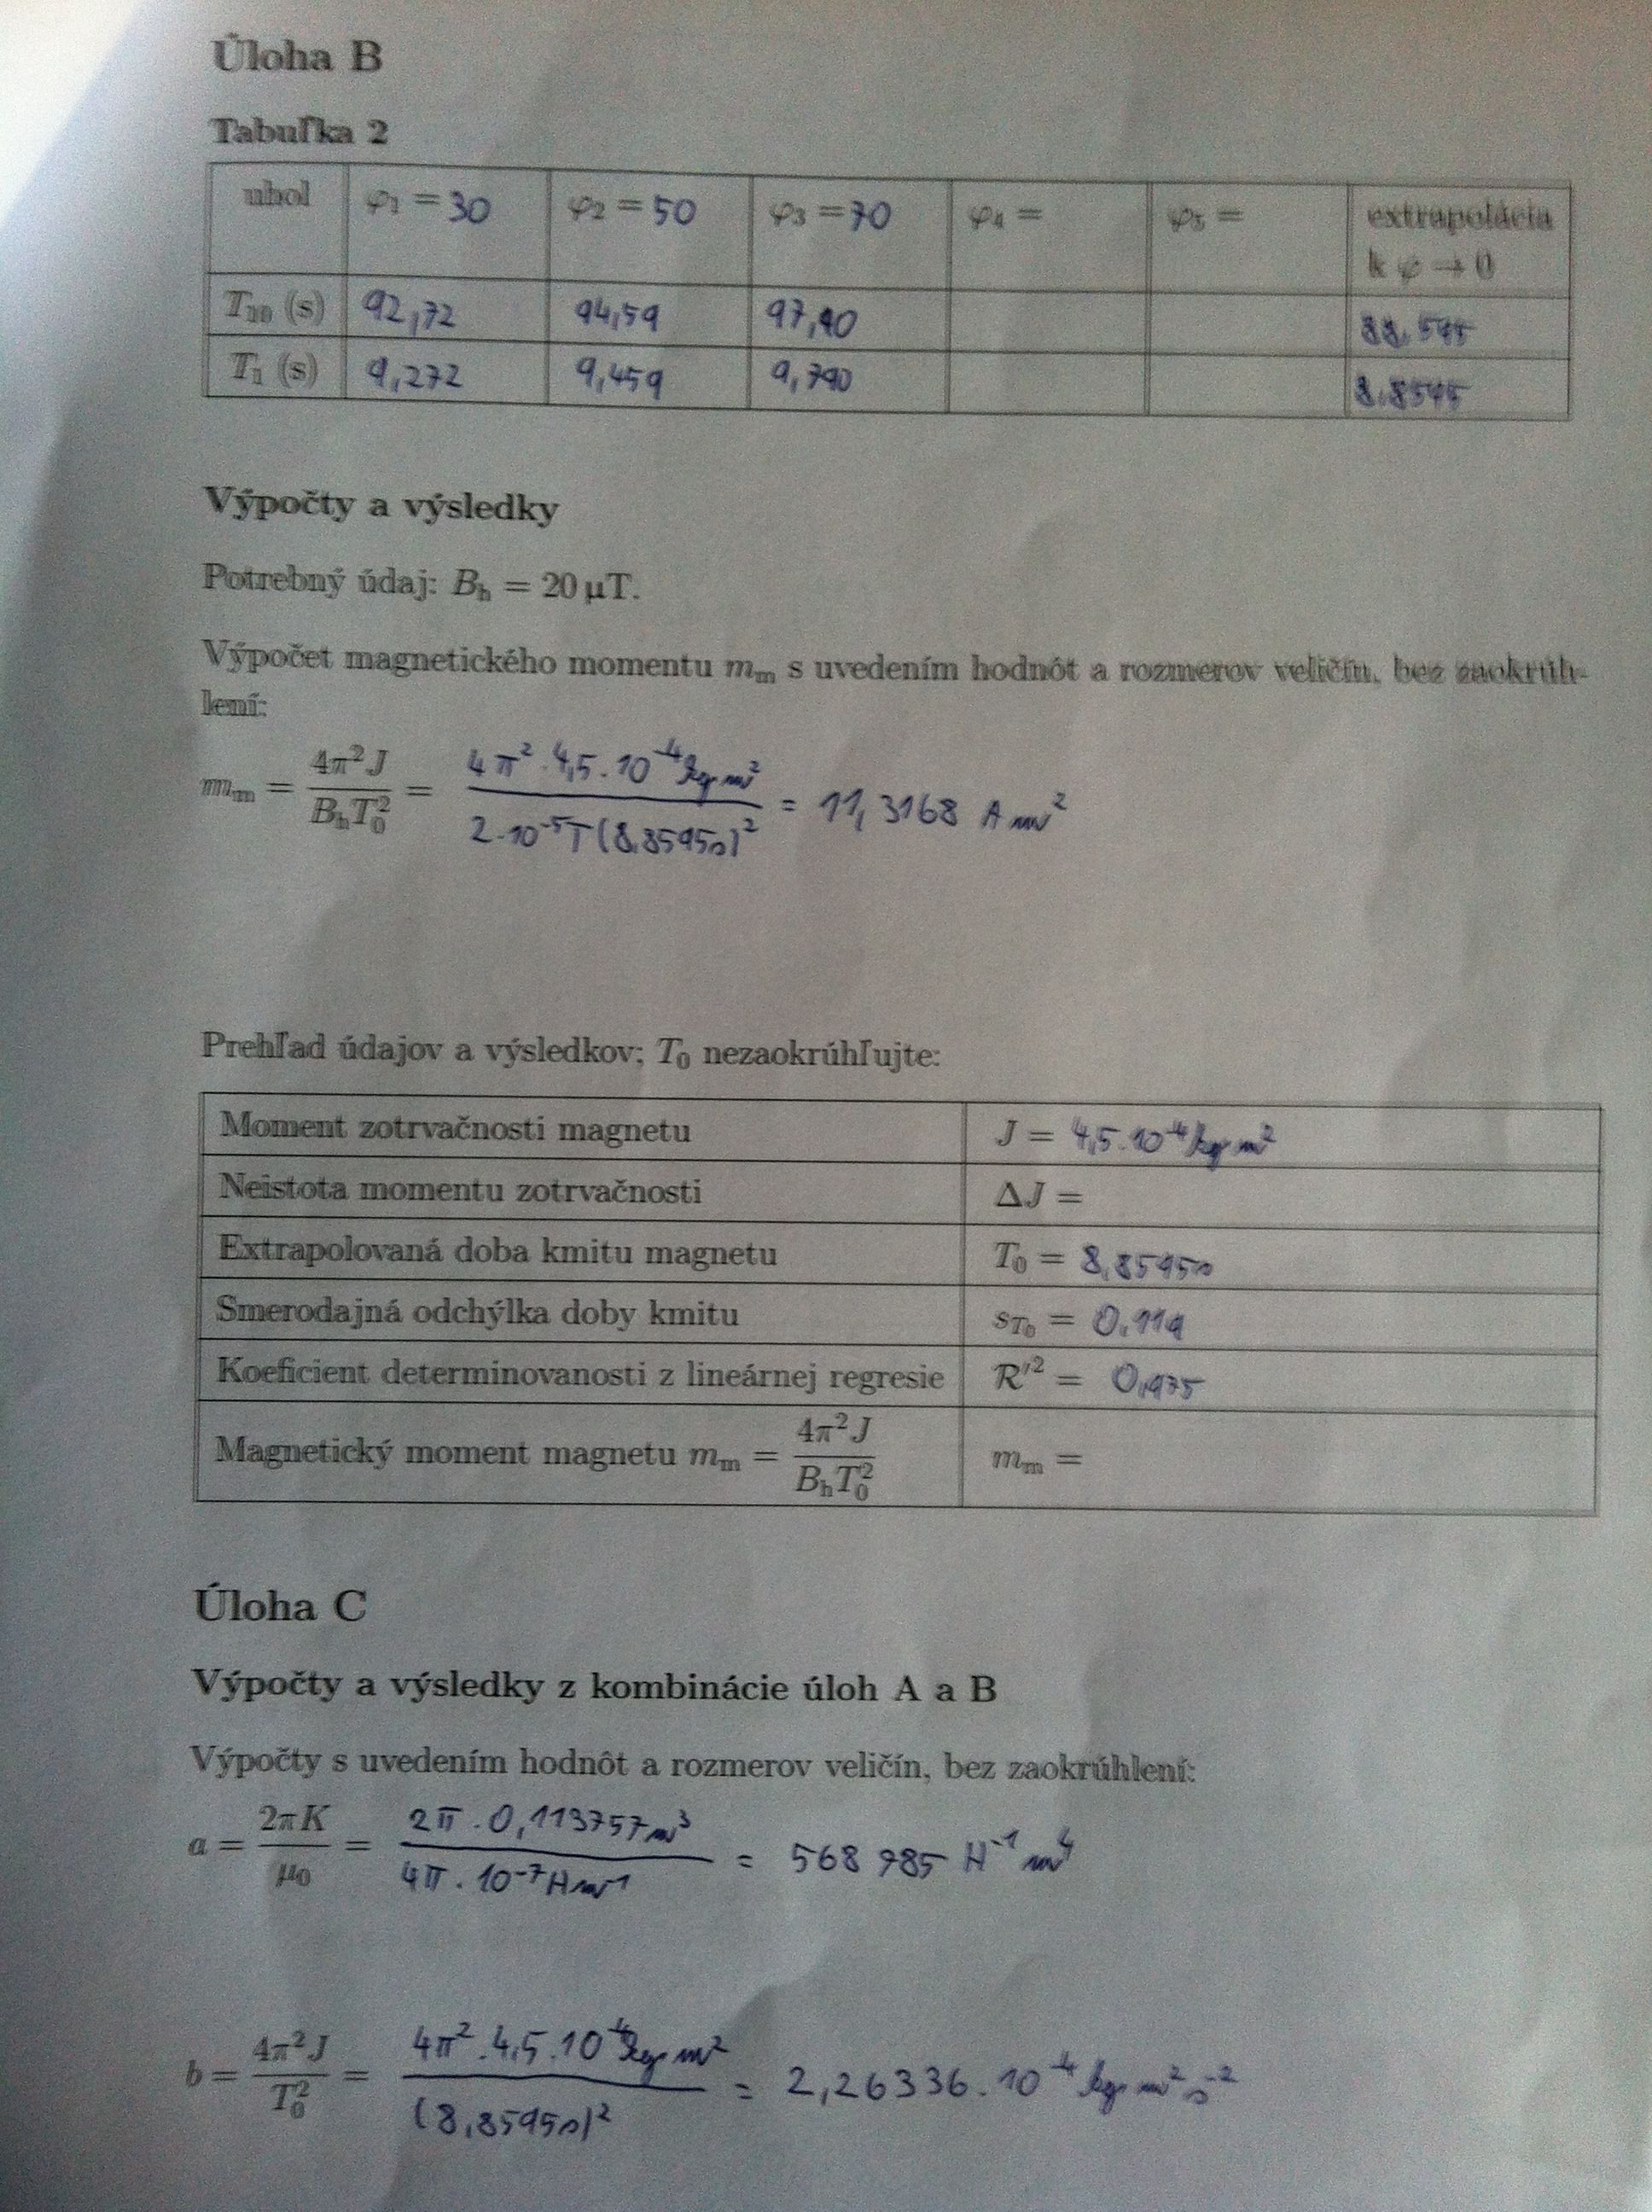 Úloha B
Tabuľka 2
uhol φ₁ = 30 φ₂ = 50 φ₃ = 70 φ₄ = φ₅ = extrapolácia
k φ → 0
T₁₀ (s) 92,72 94,59 97,90
T₁ (s) 9,272 9,459 9,790
Výpočty a výsledky
Potrebný údaj: Bₕ = 20 μT.
Výpočet magnetického momentu mₘ s uvedením hodnôt a rozmerov veličín, bez zaokrúh-
lení:
mₘ = 4π²J / BₕT₀² = 4π² · 4,5 · 10⁻⁴ kg m² / 2 · 10⁻⁵ T (8,8595 s)² = 11,3168 A m²
Prehľad údajov a výsledkov; T₀ nezaokrúhľujte:
Moment zotrvačnosti magnetu J = 4,5 · 10⁻⁴ kg m²
Neistota momentu zotrvačnosti ΔJ =
Extrapolovaná doba kmitu magnetu T₀ = 8,8595 s
Smerodajná odchýlka doby kmitu s_T₀ = 0,119
Koeficient determinovanosti z lineárnej regresie R′² = 0,975
Magnetický moment magnetu mₘ = 4π²J / BₕT₀² mₘ =
Úloha C
Výpočty a výsledky z kombinácie úloh A a B
Výpočty s uvedením hodnôt a rozmerov veličín, bez zaokrúhlení:
a = 2πK / μ₀ = 2π · 0,113757 m³ / 4π · 10⁻⁷ H m⁻¹ = 568 785 H⁻¹ m⁴
b = 4π²J / T₀² = 4π² · 4,5 · 10⁻⁴ kg m² / (8,8595 s)² = 2,26336 · 10⁻⁴ kg m² s⁻²